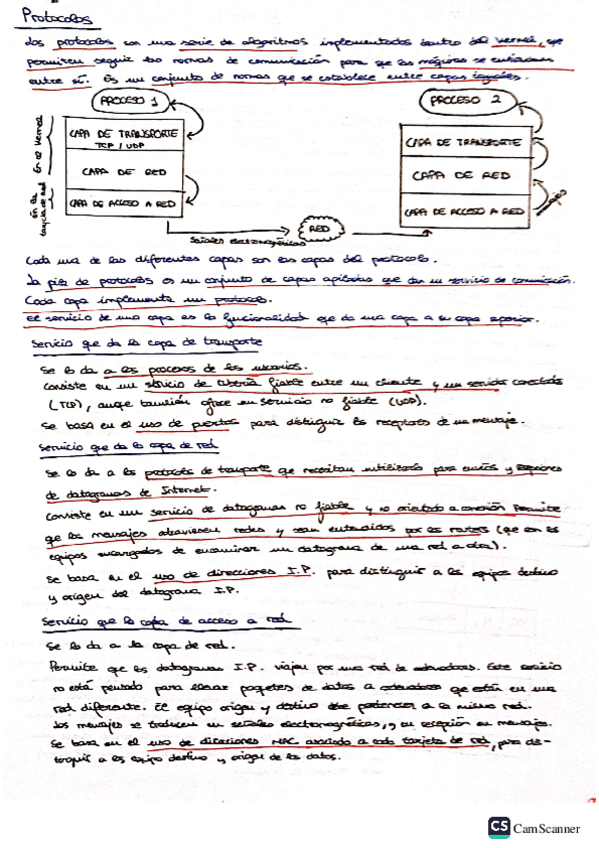 Protocolos
Los protocolos son una serie de algoritmos implementados dentro del kernel, que
permiten seguir las normas de comunicación para que las máquinas se entiendan
entre sí. Es un conjunto de normas que se establece entre capas iguales.
PROCESO 1
PROCESO 2
En el kernel
CAPA DE TRANSPORTE
TCP / UDP
CAPA DE TRANSPORTE
CAPA DE RED
CAPA DE RED
En la tarjeta de red
CAPA DE ACCESO A RED
CAPA DE ACCESO A RED
mensajes
RED
Señales electromagnéticas
Cada una de las diferentes capas son las capas del protocolo.
La pila de protocolos es un conjunto de capas apiladas que dan un servicio de comunicación.
Cada capa implementa un protocolo.
El servicio de una capa es la funcionalidad que da una capa a su capa superior.
Servicio que da la capa de transporte
Se lo da a los procesos de los usuarios.
Consiste en un servicio de tubería fiable entre un cliente y un servidor conectados
(TCP), aunque también ofrece un servicio no fiable (UDP).
Se basa en el uso de puertos para distinguir los receptores de un mensaje.
Servicio que da la capa de red
Se lo da a los protocolos de transporte que necesitan utilizarlo para envíos y
de datagramas de Internet.
Consiste en un servicio de datagramas no fiable y no orientado a conexión. Permite
que los mensajes atraviesen redes y sean enrutados por los routers (que son los
equipos encargados de encaminar un datagrama de una red a otra).
Se basa en el uso de direcciones I.P. para distinguir a los equipos destino
y origen del datagrama I.P.
Servicio que la capa de acceso a red
Se lo da a la capa de red.
Permite que los datagramas I.P. viajen por una red de ordenadores. Este servicio
no está pensado para llevar paquetes de datos a ordenadores que están en una
red diferente. El equipo origen y destino debe pertenecer a la misma red.
Los mensajes se traducen en señales electromagnéticas, y su recepción en mensajes.
Se basa en el uso de direcciones MAC asociado a cada tarjeta de red, para dis-
tinguir a los equipos destino y origen de los datos.
CS CamScanner